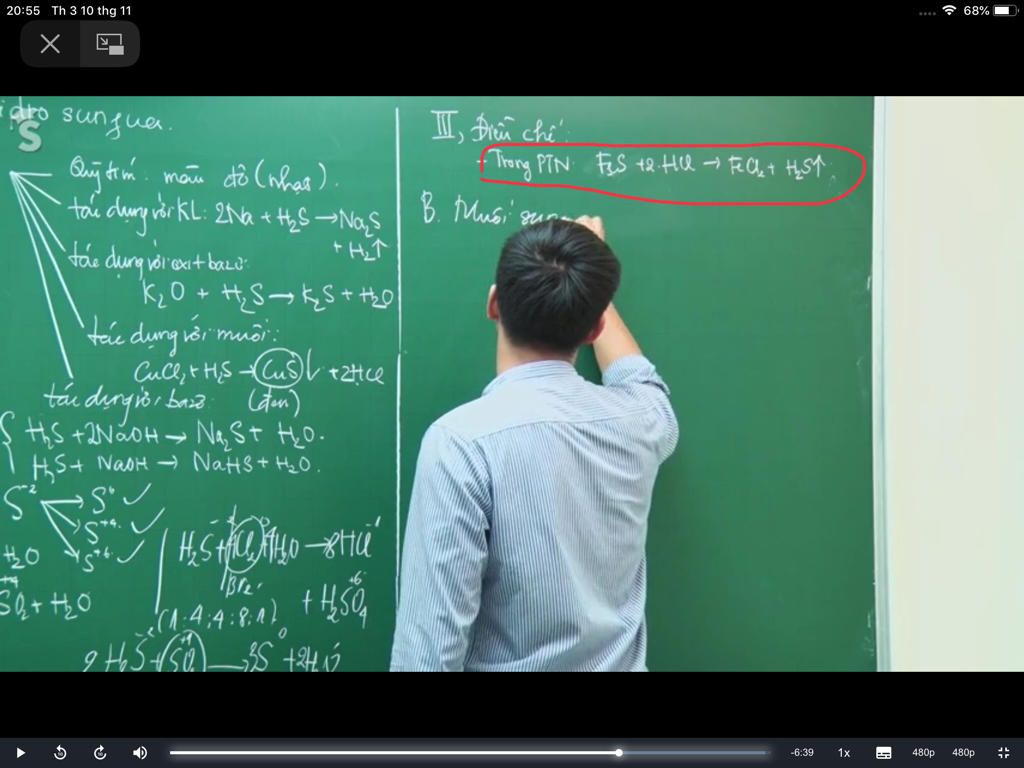 20:55 Th 3 10 thg 11
68%
idro sunfua.
S
Quỳ tím: màu đỏ (nhạt).
tác dụng với KL: 2Na + H₂S → Na₂S
+ H₂↑
tác dụng với oxit bazơ:
K₂O + H₂S → K₂S + H₂O
tác dụng với muối:
CuCl₂ + H₂S → CuS↓ + 2HCl
(đen)
tác dụng với bazơ:
H₂S + 2NaOH → Na₂S + H₂O.
H₂S + NaOH → NaHS + H₂O.
S⁻² S⁰ ✓
S⁺⁴ ✓
S⁺⁶ ✓
H₂O
SO₂ + H₂O
H₂S + 4Cl₂ + 4H₂O → 8HCl
Br₂
+ H₂SO₄
(1:4:4:8:1)
2H₂S + SO₂ → 3S + 2H₂O
III, Điều chế:
- Trong PTN: FeS + 2HCl → FeCl₂ + H₂S↑
B. Muối
-6:39 1x 480p 480p